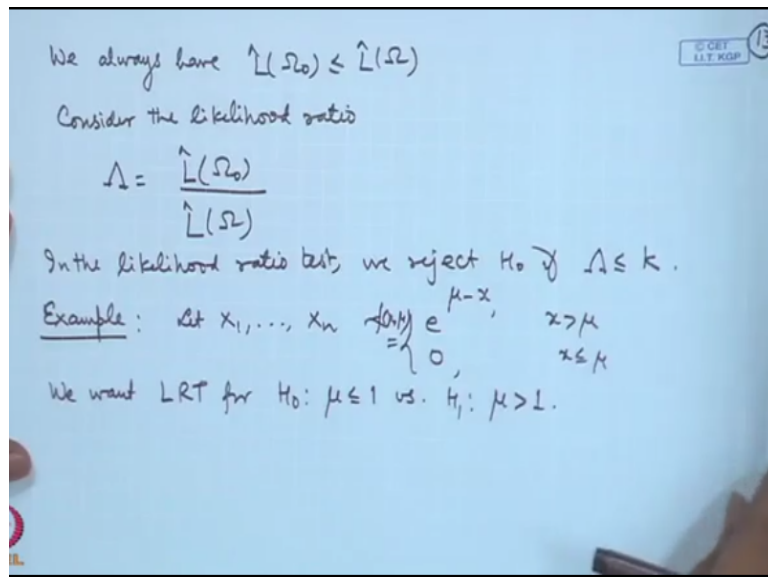 We always have L̂(Ω₀) ≤ L̂(Ω)
© CET
I.I.T. KGP
13
Consider the likelihood ratio
Λ = L̂(Ω₀) / L̂(Ω)
In the likelihood ratio test, we reject H₀ if Λ ≤ k.
Example: Let X₁, ..., Xₙ ~ f(x,μ) = { e^{μ-x}, x > μ
0, x ≤ μ
We want LRT for H₀: μ ≤ 1 vs. H₁: μ > 1.